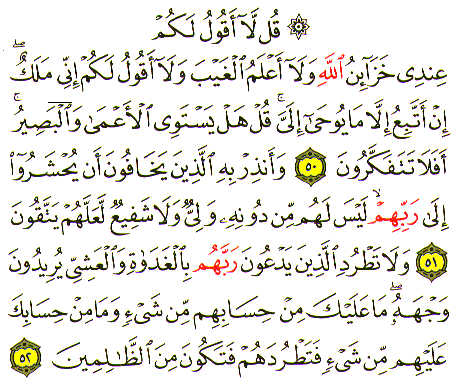 ۞ قُل لَّآ أَقُولُ لَكُمْ
عِندِى خَزَآئِنُ ٱللَّهِ وَلَآ أَعْلَمُ ٱلْغَيْبَ وَلَآ أَقُولُ لَكُمْ إِنِّى مَلَكٌ ۖ
إِنْ أَتَّبِعُ إِلَّا مَا يُوحَىٰٓ إِلَىَّ ۚ قُلْ هَلْ يَسْتَوِى ٱلْأَعْمَىٰ وَٱلْبَصِيرُ ۚ
أَفَلَا تَتَفَكَّرُونَ ٥٠ وَأَنذِرْ بِهِ ٱلَّذِينَ يَخَافُونَ أَن يُحْشَرُوٓا۟
إِلَىٰ رَبِّهِمْ ۙ لَيْسَ لَهُم مِّن دُونِهِۦ وَلِىٌّ وَلَا شَفِيعٌ لَّعَلَّهُمْ يَتَّقُونَ
٥١ وَلَا تَطْرُدِ ٱلَّذِينَ يَدْعُونَ رَبَّهُم بِٱلْغَدَوٰةِ وَٱلْعَشِىِّ يُرِيدُونَ
وَجْهَهُۥ ۖ مَا عَلَيْكَ مِنْ حِسَابِهِم مِّن شَىْءٍ وَمَا مِنْ حِسَابِكَ
عَلَيْهِم مِّن شَىْءٍ فَتَطْرُدَهُمْ فَتَكُونَ مِنَ ٱلظَّـٰلِمِينَ ٥٢